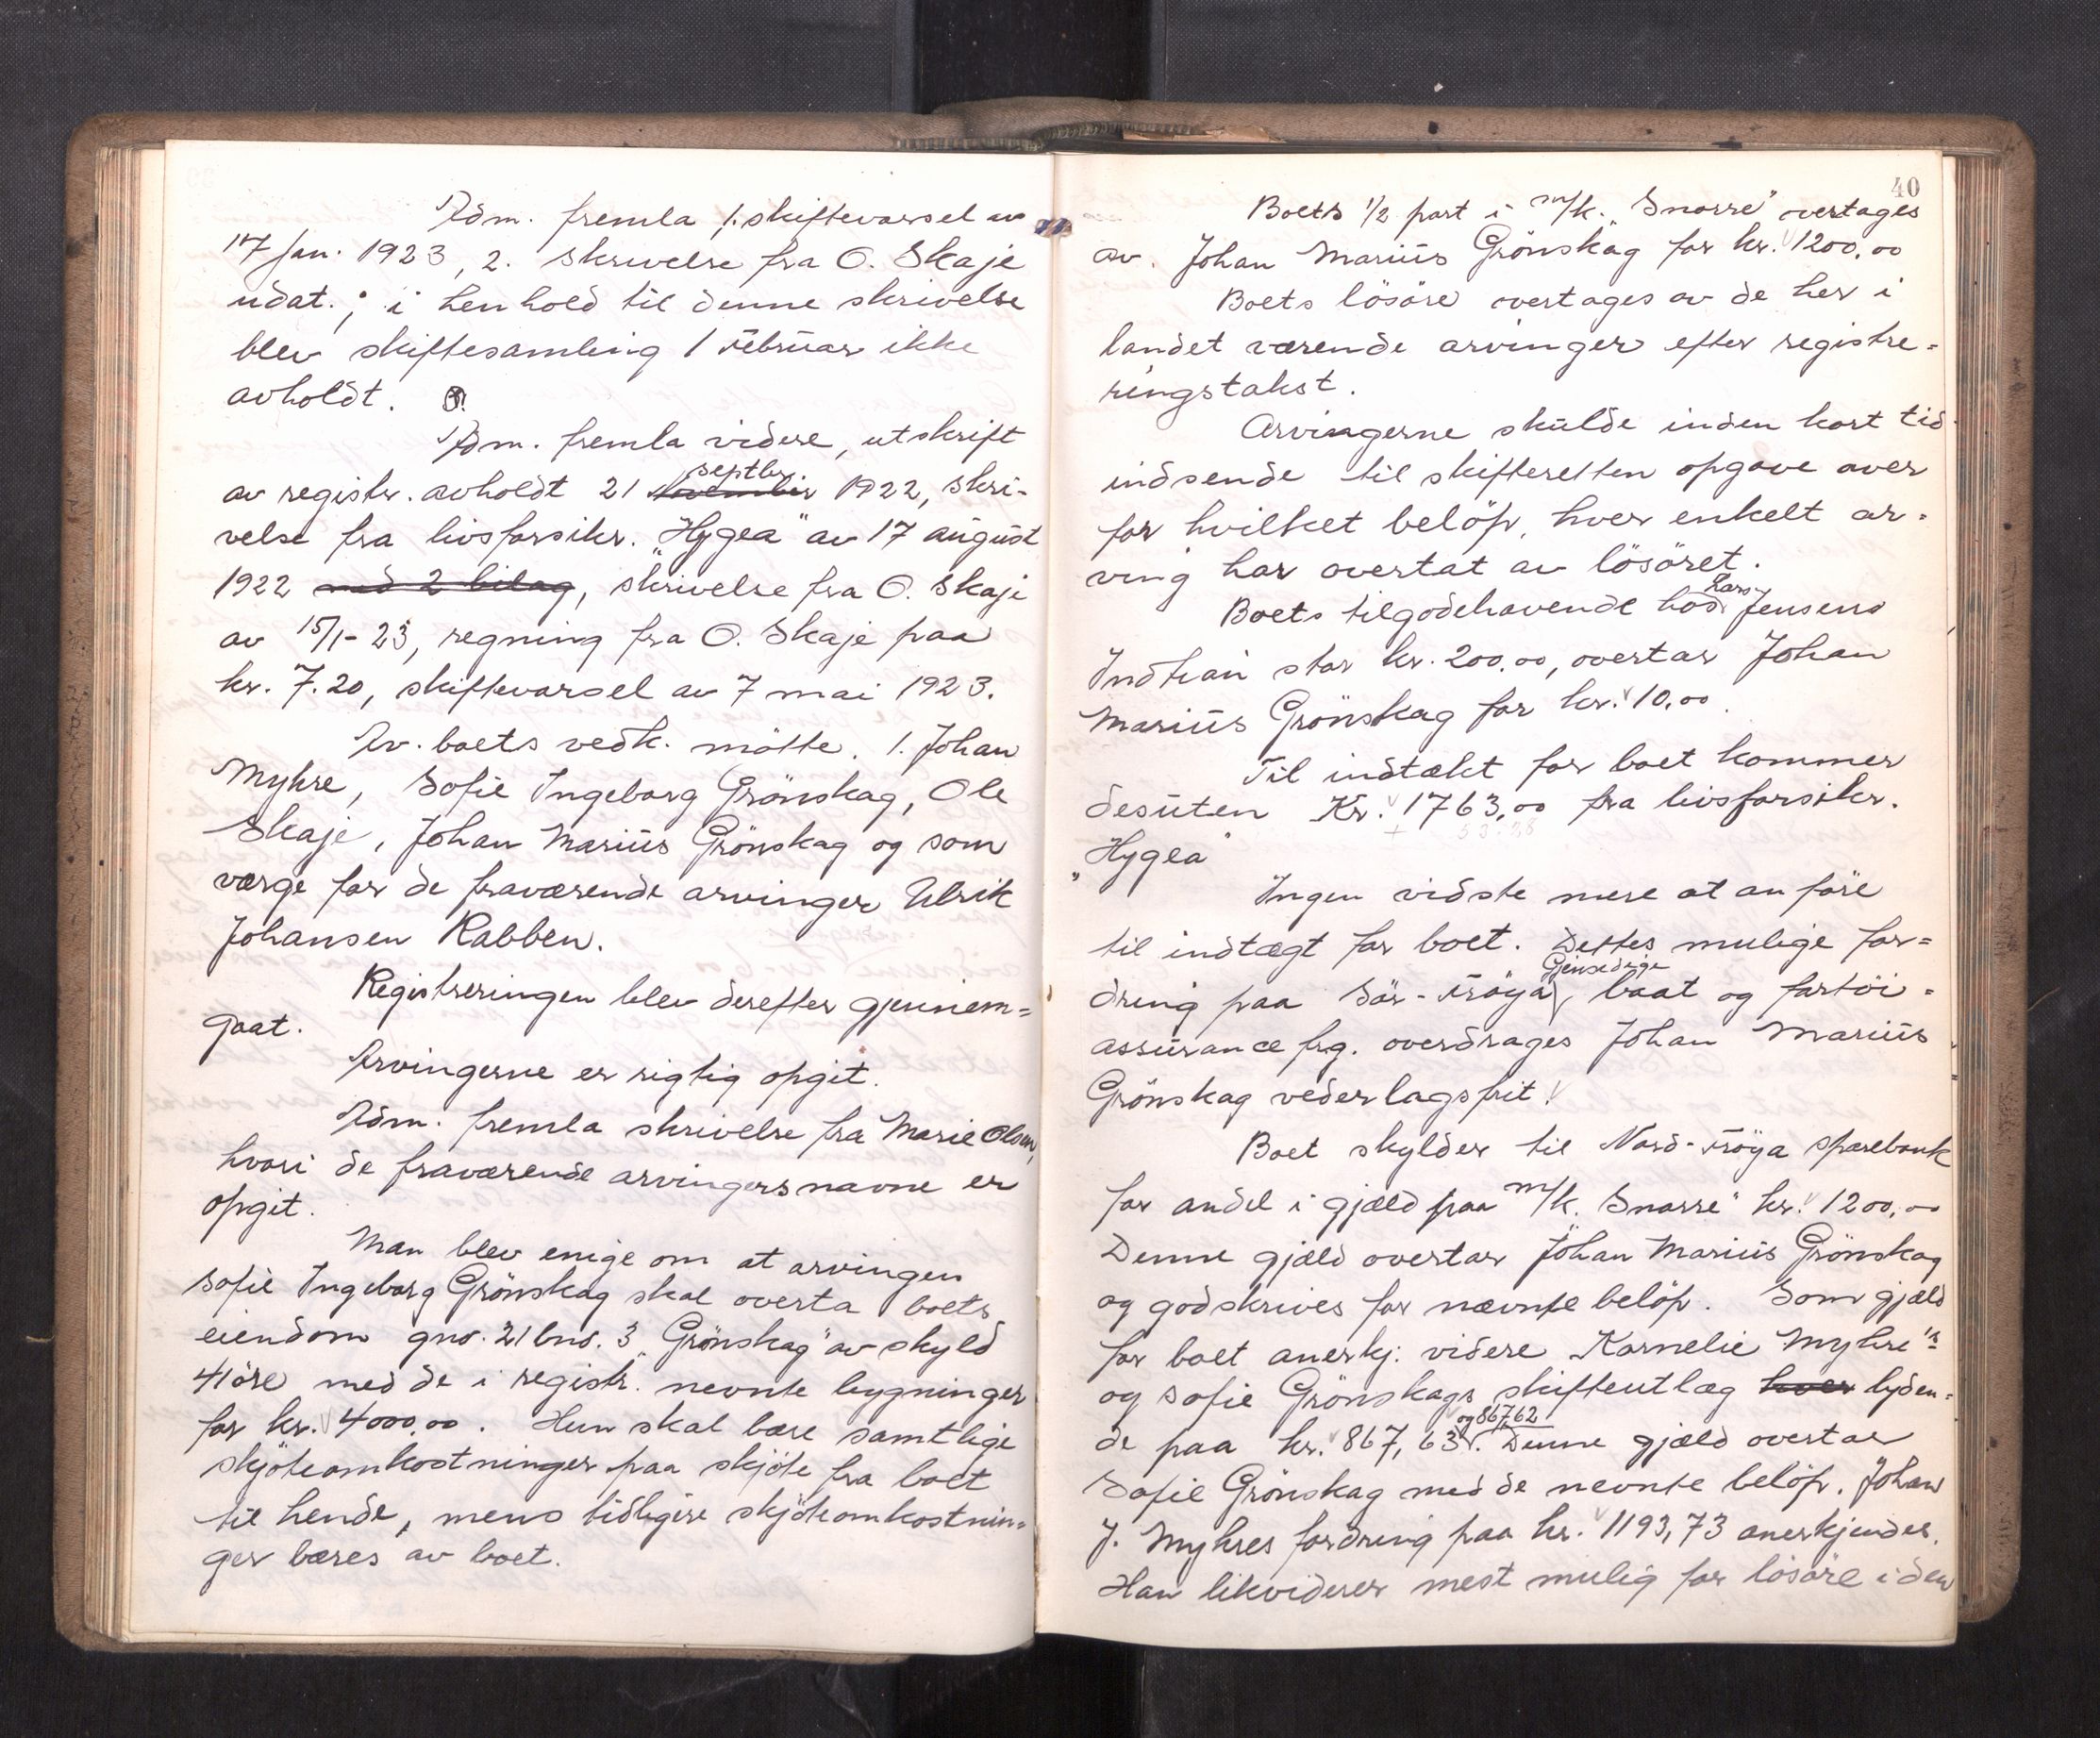 Adm. fremla 1. skiftevarsel av
17 jan. 1923, 2. skrivelse fra O. Skaje
udat.; i henhold til denne skrivelse
blev skiftesamling 1 februar ikke
avholdt.
Adm. fremla videre, utskrift
septbr.
av registr. avholdt 21 november 1922, skri-
velse fra livsforsikr. "Hygea" av 17 august
1922 med 2 bilag, skrivelse fra O. Skaje
av 15/1-23, regning fra O. Skaje paa
kr. 7.20, skiftevarsel av 7 mai 1923.
Av boets vedk. møtte. 1. Johan
Myhre, Sofie Ingeborg Grönskag, Ole
Skaje, Johan Marius Grönskag og som
værge for de fraværende arvinger Ulrik
Johansen Rabben.
Registreringen blev derefter gjennem=
gaat.
Arvingerne er rigtig opgit.
Adm. fremla skrivelse fra Marie Olsen,
hvori de fraværende arvingers navne er
opgit.
Man blev enige om at arvingen
Sofie Ingeborg Grönskag skal overta boets
eiendom gno. 21 bno. 3 "Grönskag" av skyld
41 öre med de i registr. nevnte bygninger
for kr. 4000,00. Hun skal bære samtlige
skjöteomkostninger paa skjöte fra boet
til hende, mens tidligere skjöteomkostnin=
ger bæres av boet.
40
Boets 1/2 part i m/k. "Snorre" overtages
av Johan Marius Grönskag for kr. 1200,00
Boets lösöre overtages av de her i
landet værende arvinger efter registre=
ringstakst.
Arvingerne skulde inden kort tid
indsende til skifteretten opgave over
for hvilket belöp hver enkelt ar=
ving har overtat av lösöret.
Lars
Boets tilgodehavende hos Jensens
stor kr. 200,00, overtar Johan
Marius Grönskag for kr. 10,00.
Til indtækt for boet kommer
desuten Kr. 1763,00 fra livsforsikr.
"Hygea"
Ingen vidste mere at anföre
til indtægt for boet. Dettes mulige for=
Gjensidige
dring paa Sör-Fröya, baat og fartöi=
assurance frg. overdrages Johan Marius
Grönskag vederlagsfrit.
Boet skylder til Nord-Fröya sparebank
for andel i gjæld paa m/k. "Snorre" kr. 1200,00
Denne gjæld overtar Johan Marius Grönskag
og godskrives for nævnte belöp. Som gjæld
for boet anerkj. videre Kornelie Myhre's
og Sofie Grönskags skifteutlæg hver lyden=
og 867,62
de paa kr. 867,63. Denne gjæld overtar
Sofie Grönskag med de nevnte belöp. Johan
J. Myhres fordring paa kr. 1193,73 anerkjendes.
Han likviderer mest mulig for lösöre i den